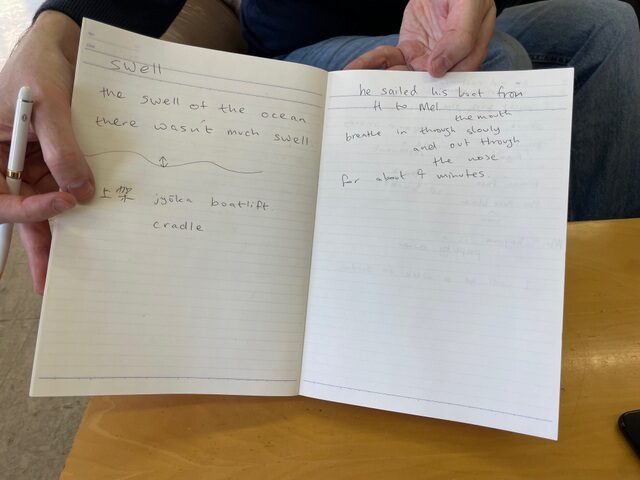 swell
the swell of the ocean
there wasn't much swell
上架 jyōka boatlift.
cradle
he sailed his boat from
H to Mel
the mouth
breathe in through slowly
and out through
the nose
for about 4 minutes.